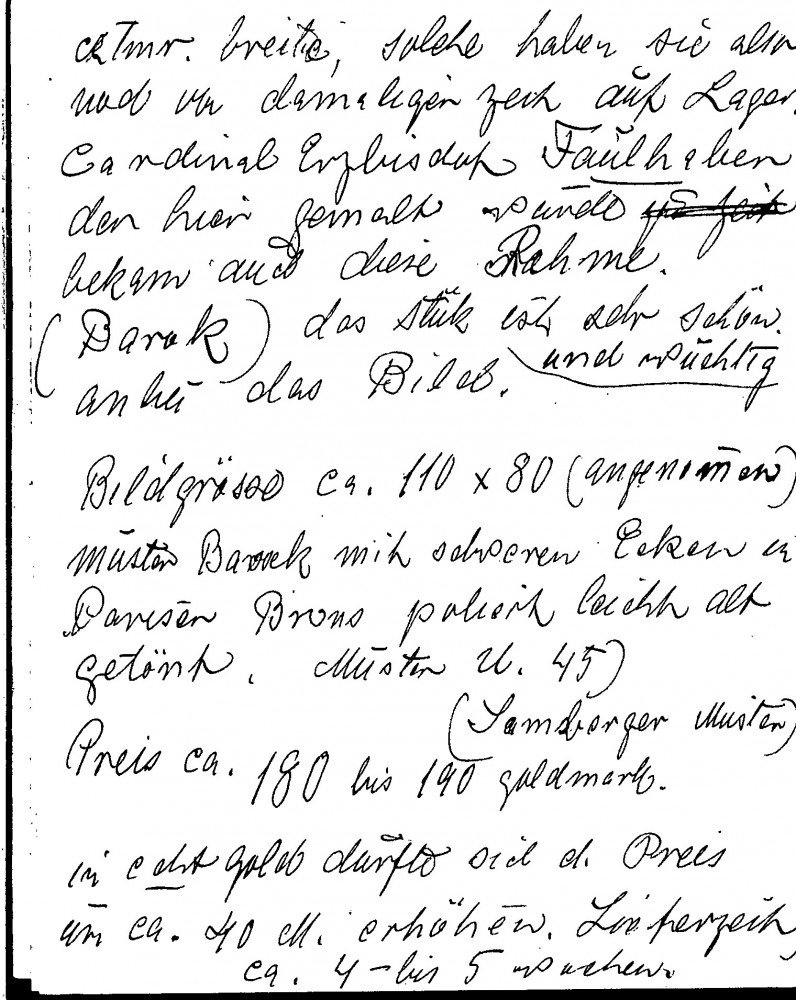 cetmr. breite, solche haben sie also
und vor damaligen zeit auf Lager.
Cardinal Erzbischof Faulhaber
der hier gemalt wurde
bekam auch diese Rahme.
(Barok) das Stük ist sehr schön.
und wüchtig
anbei das Bild.
Bildgrösse ca. 110 x 80 (angenomen)
Muster Barock mit schweren Ecken in
Pariser Brons poliert leicht alt
getönt. Muster U. 45)
(Samberger Muster)
Preis ca. 180 bis 190 goldmark.
in echt gold dürfte sich d. Preis
um ca. 40 M. erhöhen. Lieferzeit
ca. 4 - bis 5 wochen.